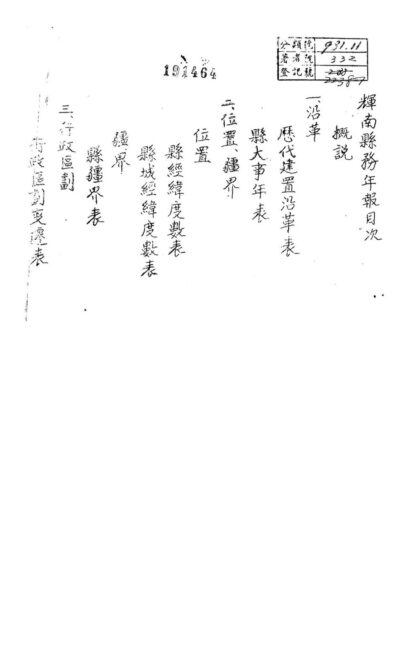 分類號 931.11
著者號 332
登記號
191464
輝南縣務年報目次
概説
一、沿革
歷代建置沿革表
縣大事年表
二、位置、疆界
位置
縣經緯度數表
縣城經緯度數表
疆界
縣疆界表
三、行政區劃
行政區劃變遷表